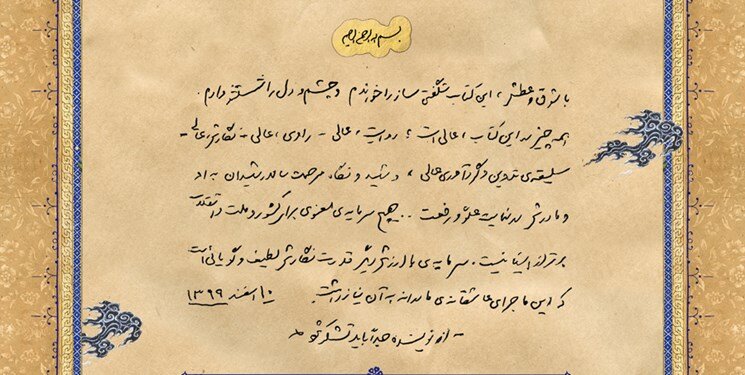 بسم الله الرحمن الرحیم
با شوق و عطش، این کتاب شگفتی‌ساز را خواندم و چشم و دل را شستشو دادم.
همه چیز در این کتاب، عالی است؛ روایت، عالی - راوی، عالی - نگارش، عالی -
سلیقه‌ی تدوین و گردآوری، عالی، و شهید و نگاه مرحمت سالار شهیدان به او
و مادرش در نهایت علوّ و رفعت .. هیچ سرمایه‌ی معنوی برای کشور و ملت و انقلاب
برتر از اینها نیست. سرمایه‌ی باارزش دیگر قدرت نگارش لطیف و گویائی است
که این ماجرای عاشقانه‌ی مادرانه به آن نیاز داشت. ۱۰ اسفند ۱۳۹۹
- از نویسنده جداً باید تشکر شود -